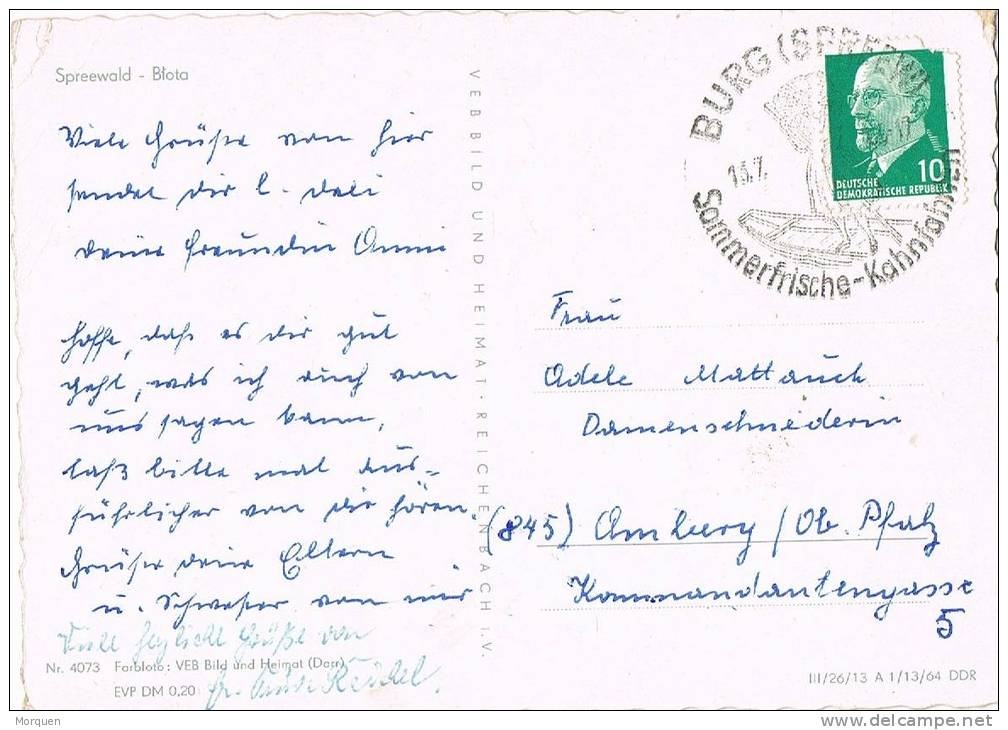 Spreewald - Błota
Viele Grüße von hier
sendet dir l.
deine Freundin Anni
hoffe, daß es dir gut
geht, was ich auch von
uns sagen kann,
laß bitte mal aus-
führlicher von dir hören.
Grüße deine Eltern
u. Schwester von mir
Viele herzliche Grüße von
Nr. 4073 Farbfoto: VEB Bild und Heimat (Darr)
EVP DM 0,20
VEB BILD UND HEIMAT · REICHENBACH I. V.
BURG (SPREEW)
13.7.
-17
Sommerfrische-Kahnfahrten
10
DEUTSCHE
DEMOKRATISCHE REPUBLIK
Frau
Adele Mattauch
Damenschneiderin
(845) Amberg / Ob. Pfalz
Kommandantengasse
5
III/26/13 A 1/13/64 DDR
Morquen
www.delcampe.net